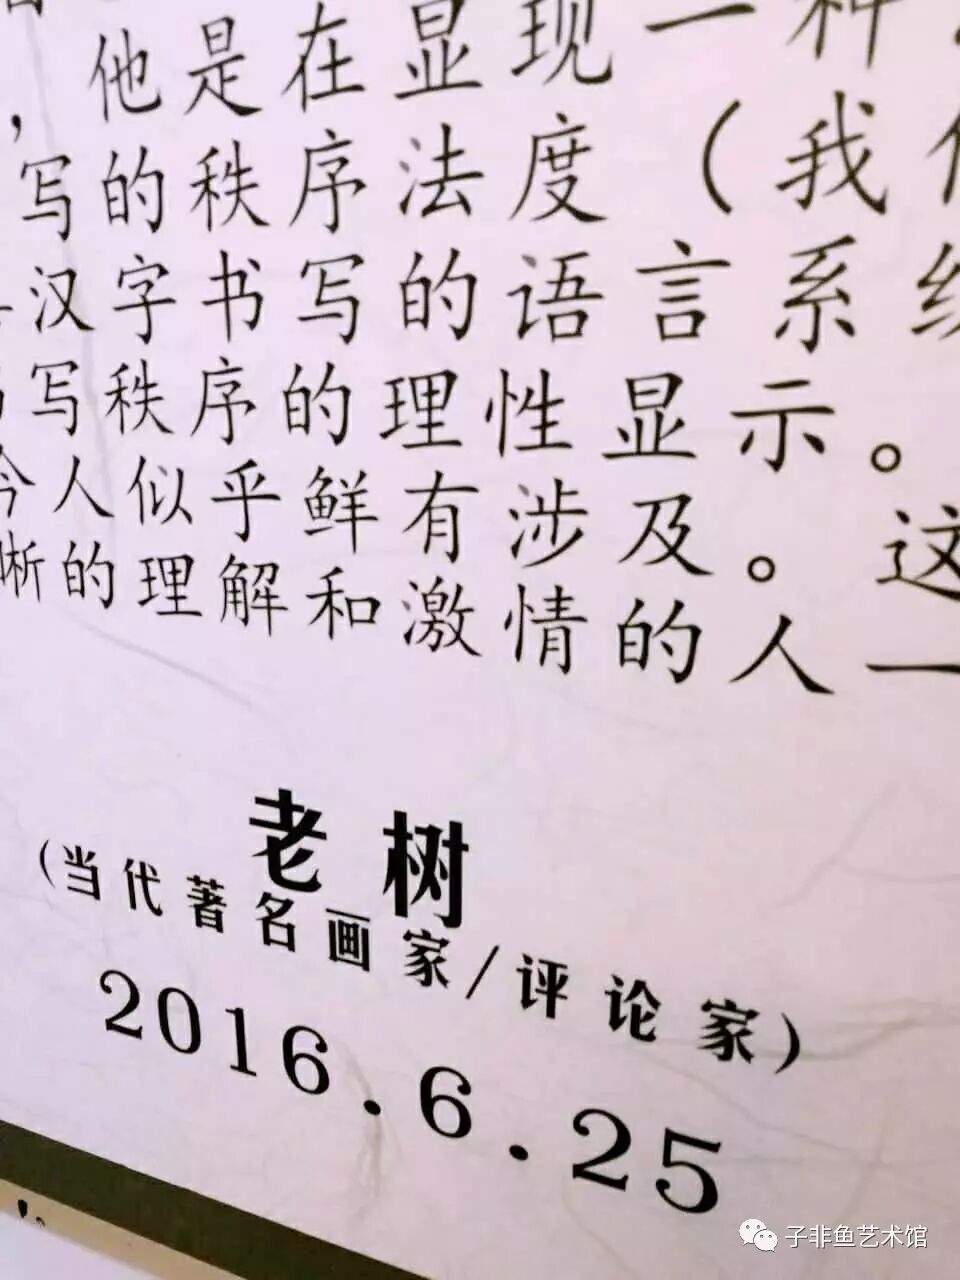 ，他是在显现一种
写的秩序法度（我
汉字书写的语言系统
写秩序的理性显示。
今人似乎鲜有涉及。这
晰的理解和激情的人一
老树
(当代著名画家/评论家)
2016.6.25
子非鱼艺术馆